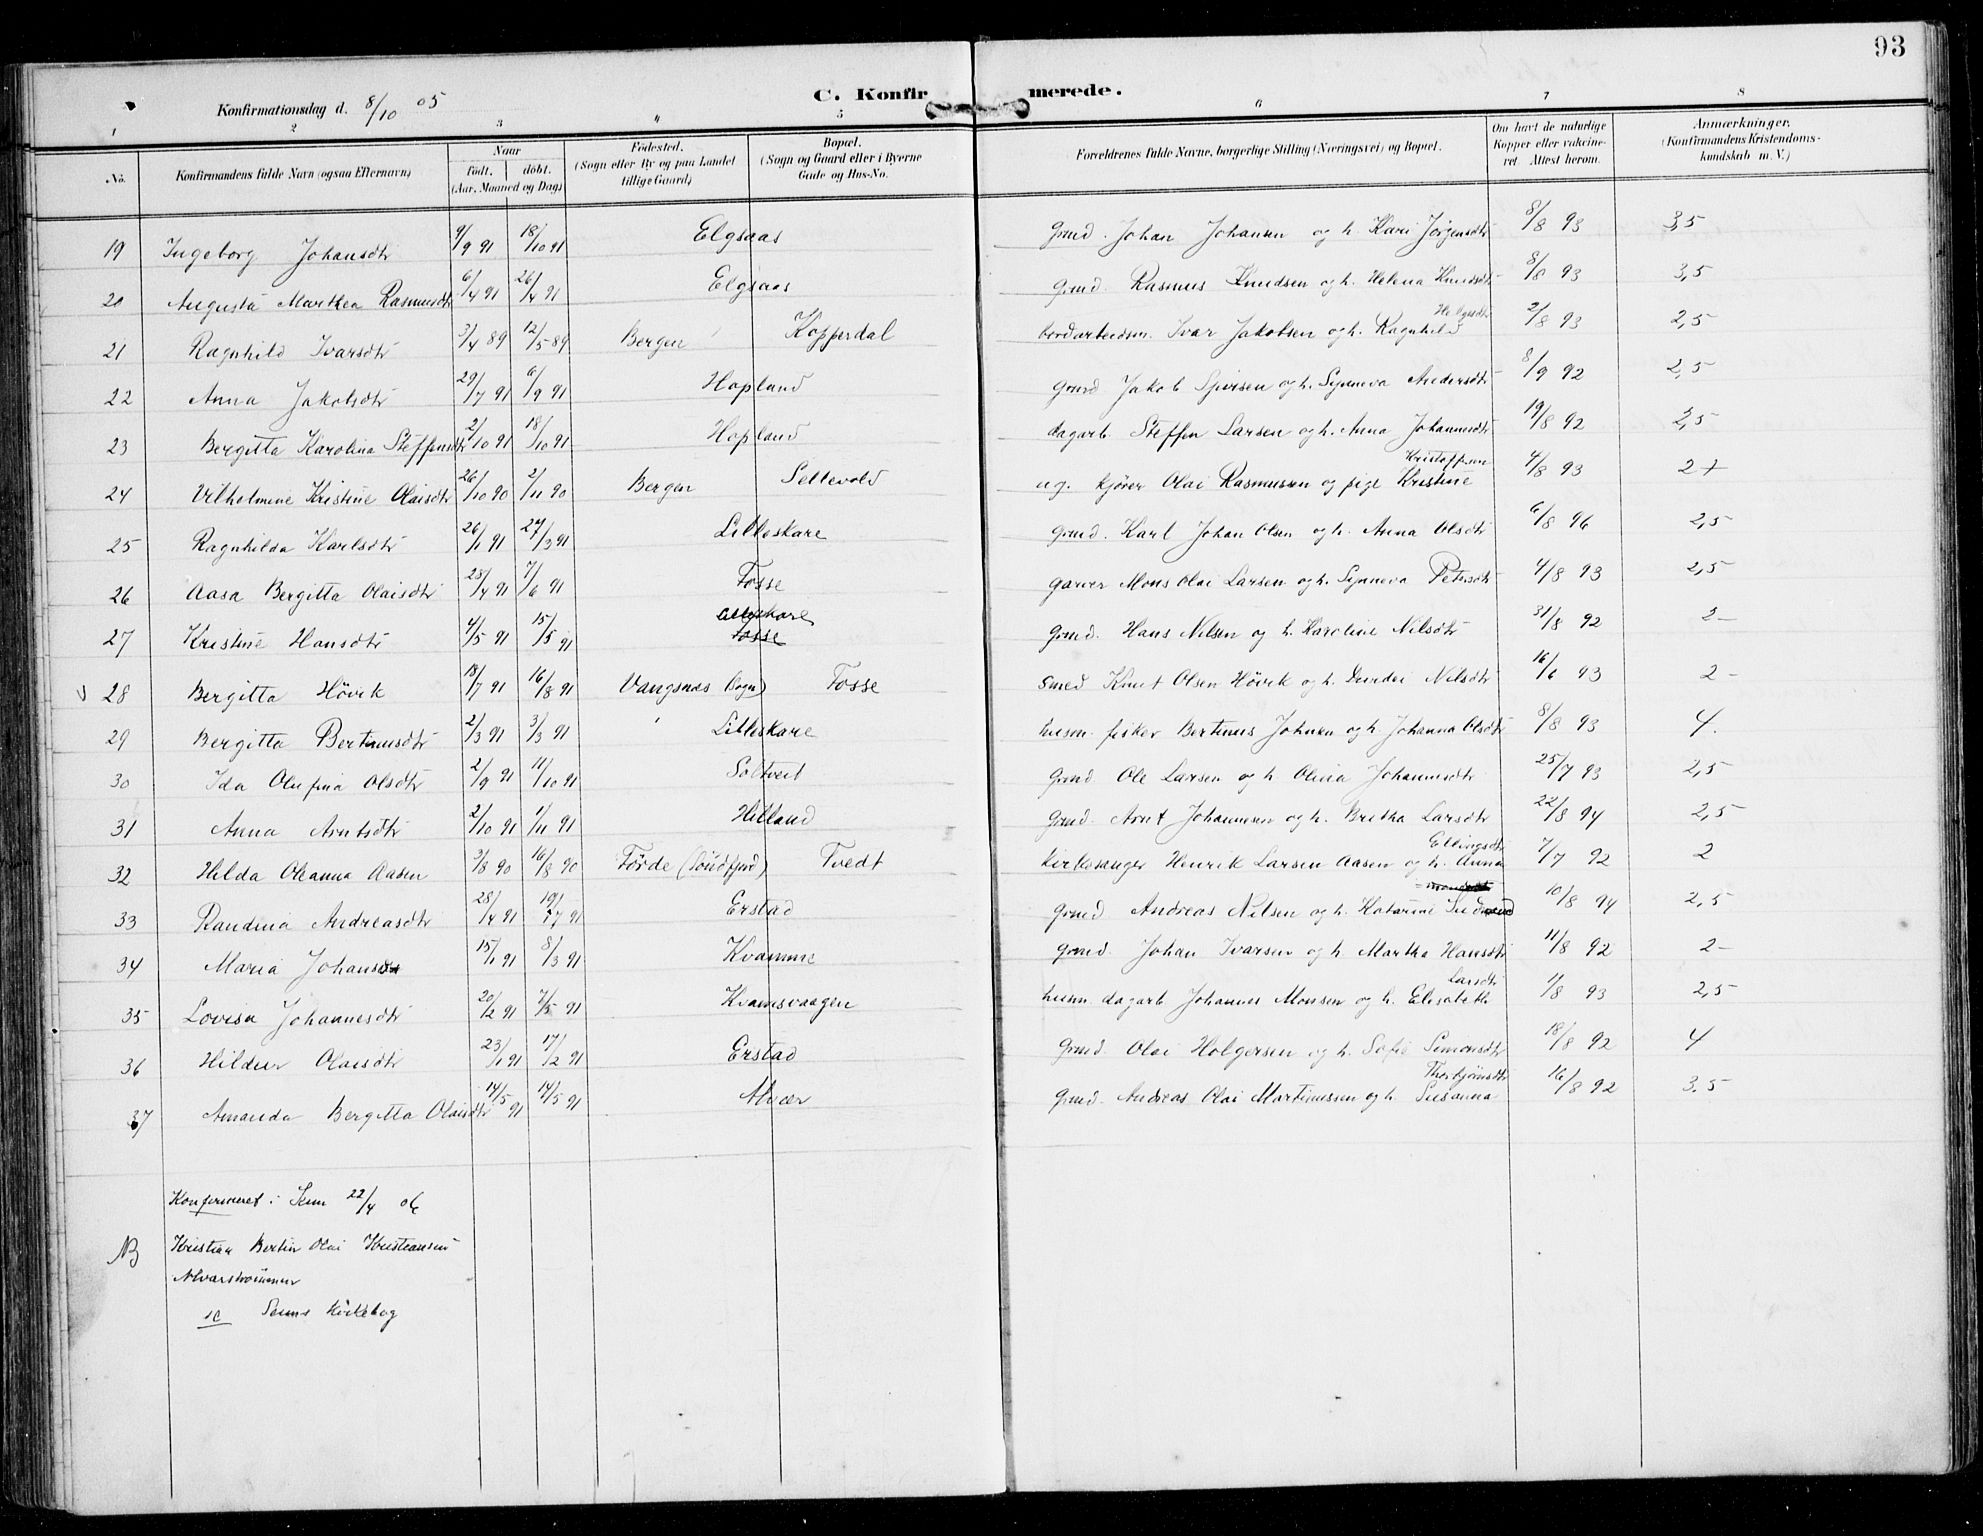 93
C. Konfirmerede.
Konfirmationsdag d. 8/10 05
1 2 3 4 5 6 7 8
No. Konfirmandens fulde Navn (ogsaa Efternavn) Naar født. døbt. (Aar, Maaned og Dag) Fødested. (Sogn eller By og paa Landet tillige Gaard) Bopæl. (Sogn og Gaard eller i Byerne Gade og Hus-No. Forældrenes fulde Navne, borgerlige Stilling (Næringsvei) og Bopæl. Om havt de naturlige Kopper eller vakcineret. Attest herom. Anmærkninger. (Konfirmandens Kristendomskundskab m. V.)
19 Ingeborg Johansdtr 9/9 91 18/10 91 Elgsaas Grmd. Johan Johansen og h. Kari Jørgensdtr 8/8 93 3,5
20 Augusta Marthea Rasmusdtr 6/4 91 26/4 91 Elgsaas Grmd. Rasmus Knudsen og h. Helena Knudsdtr 8/8 93 3,5
21 Ragnhild Ivarsdtr 3/4 89 12/5 89 Bergen Kopperdal bordarbeidsm. Ivar Jakobsen og h. Ragnhild 2/8 93 2,5
22 Anna Jakobsdtr 29/7 91 6/9 91 Hopland Grmd Jakob Sjursen og h. Synneva Andersdtr 8/9 92 2,5
23 Bergitta Karolina Steffensdtr 2/10 91 18/10 91 Hopland dagarb. Steffen Larsen og h. Anna Johannesdtr 19/8 92 2,5
24 Vilhelmine Kristine Olaisdtr 26/10 90 2/11 90 Bergen Sellevold ug. kjører Olai Rasmussen og pige Kristine Kristoffersen 4/8 93 2+
25 Ragnhilda Karlsdtr 26/1 91 27/3 91 Lilleskare Grmd. Karl Johan Olsen og h. Anna Olsdtr 6/8 96 2,5
26 Aasa Bergitta Olaisdtr 23/4 91 7/6 91 Fosse garver Mons Olai Larsen og h. Synneva Petersdtr 4/8 93 2,5
27 Kristine Hansdtr 4/5 91 15/5 91 Fosse Grmd. Hans Nilsen og h. Karoline Nilsdtr 31/8 92 2-
28 Bergitta Hövik 18/7 91 16/8 91 Vangsnes (Sogn) Fosse Smed Knut Olsen Hövik og h. Nilsdtr 16/6 93 2-
29 Bergitta Bertinusdtr 2/3 91 3/3 91 Lilleskare husm. fisker Bertinus Johnsen og h. Johanna Olsdtr 8/8 93 4.
30 Ida Olufina Olsdtr 2/9 91 11/10 91 Soltveit Grmd. Ole Larsen og h. Olina Johannesdtr 25/7 93 2,5
31 Anna Arntsdtr 2/10 91 1/11 91 Hilland Grmd. Arnt Johannesen og h. Britha Larsdtr 22/8 94 2,5
32 Hilda Ohanna Aasen 3/8 90 16/8 90 Förde (Söndfjord) Tvedt kirkesanger Henrik Larsen Aasen og h. Anna Ellingsdtr 7/7 92 2
33 Randina Andreasdtr 28/4 91 19/7 91 Erstad Grmd Andreas Nilsen og h. Katarine 10/8 94 2,5
34 Maria Johansdtr 15/1 91 8/3 91 Kvamme Grmd. Johan Ivarsen og h. Martha Hansdtr 11/8 92 2-
35 Lovisa Johannesdtr 20/2 91 7/5 91 Kvamsvaagen husm. dagarb. Johannes Monsen og h. Elisabeth Larsdtr 11/8 93 2,5
36 Hildur Olaisdtr 23/1 91 17/2 91 Erstad Grmd. Olai Holgersen og h. Sofie Simonsdtr 18/8 92 4
37 Amanda Bergitta Olaisdtr 14/5 91 14/5 91 Alvær Grmd. Andreas Olai Martinussen og h. Susanna Thorbjørnsdtr 16/8 92 3,5
Konfirmeret i Seim 22/4 06
NB Kristian Bertin Olai Kristiansen
Alverstrømmen
se Seims Kirkebog